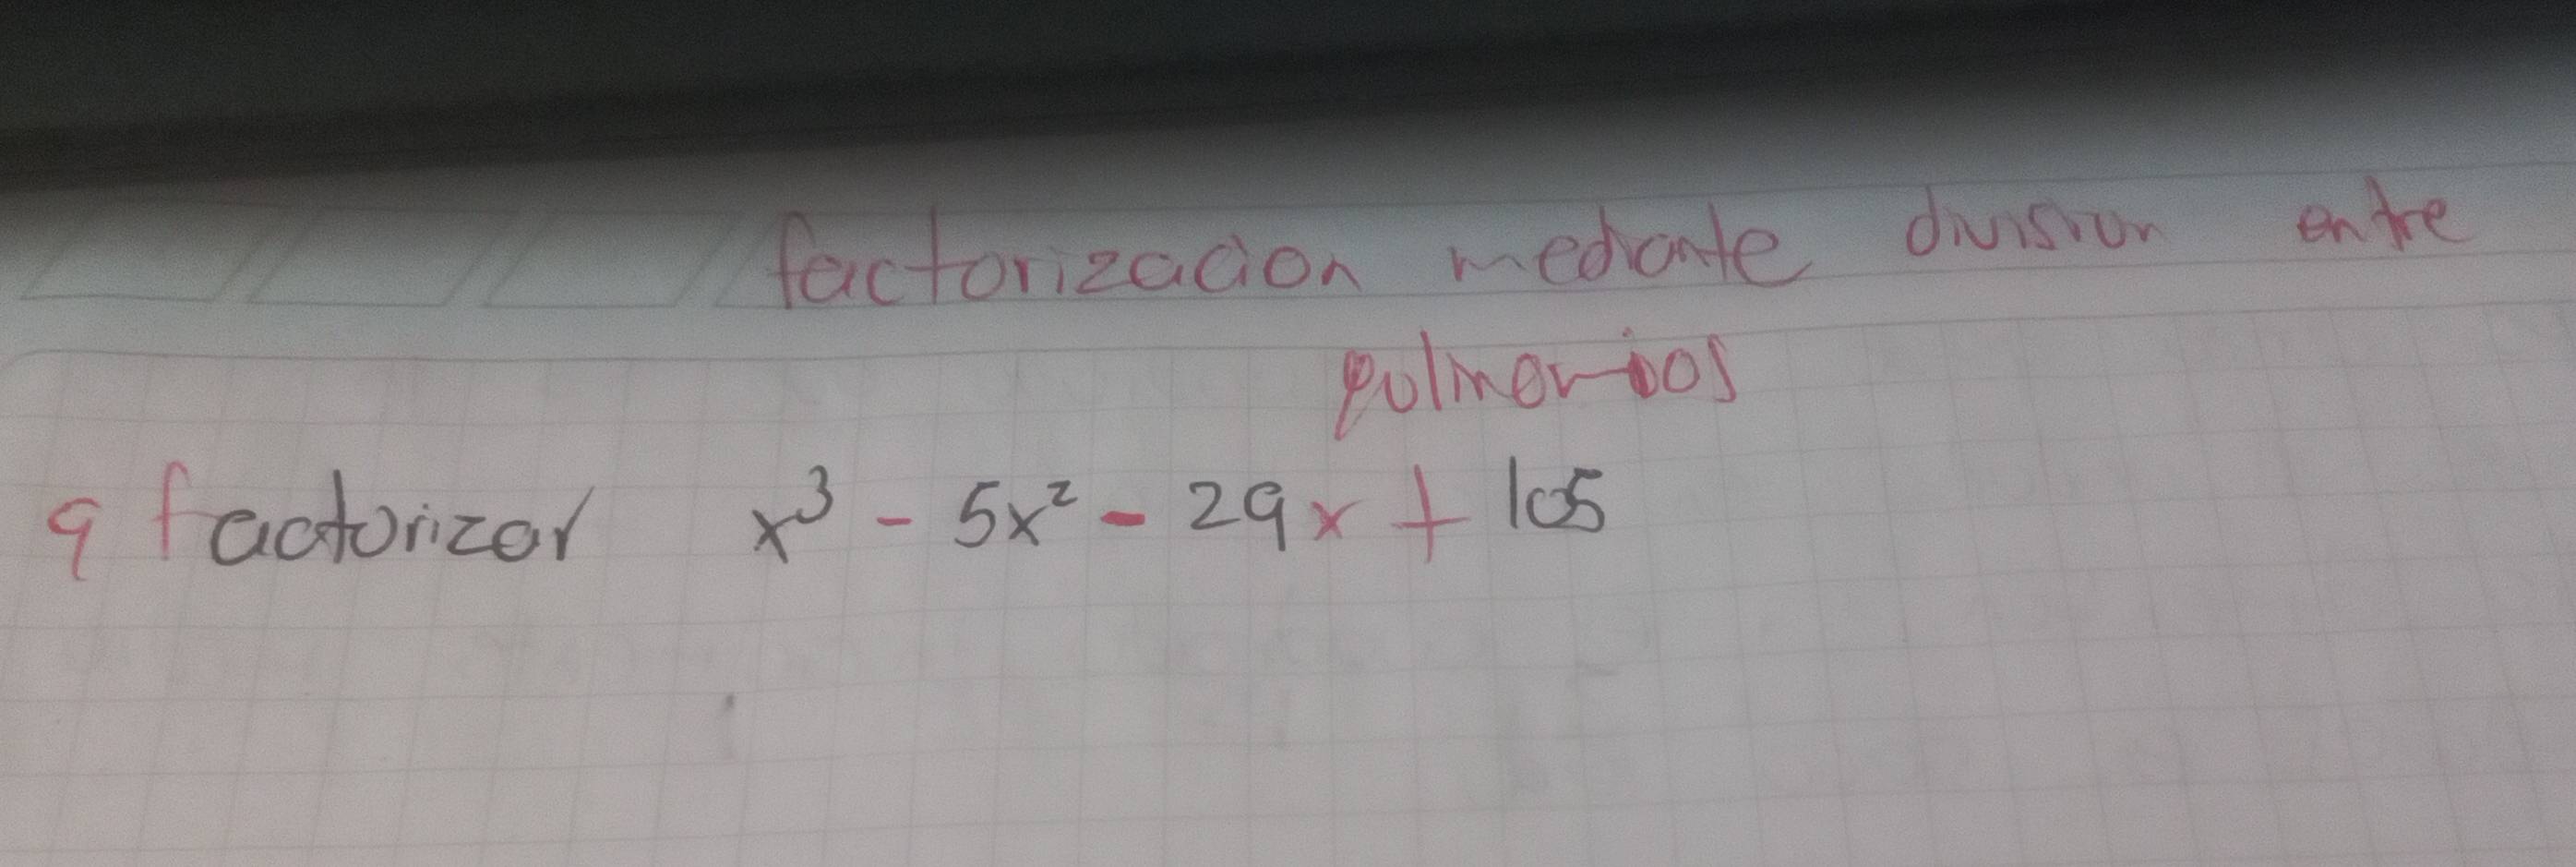 factorizacion mediante division entre
pulmonios
9 factorizar x³ - 5x² - 29x + 105